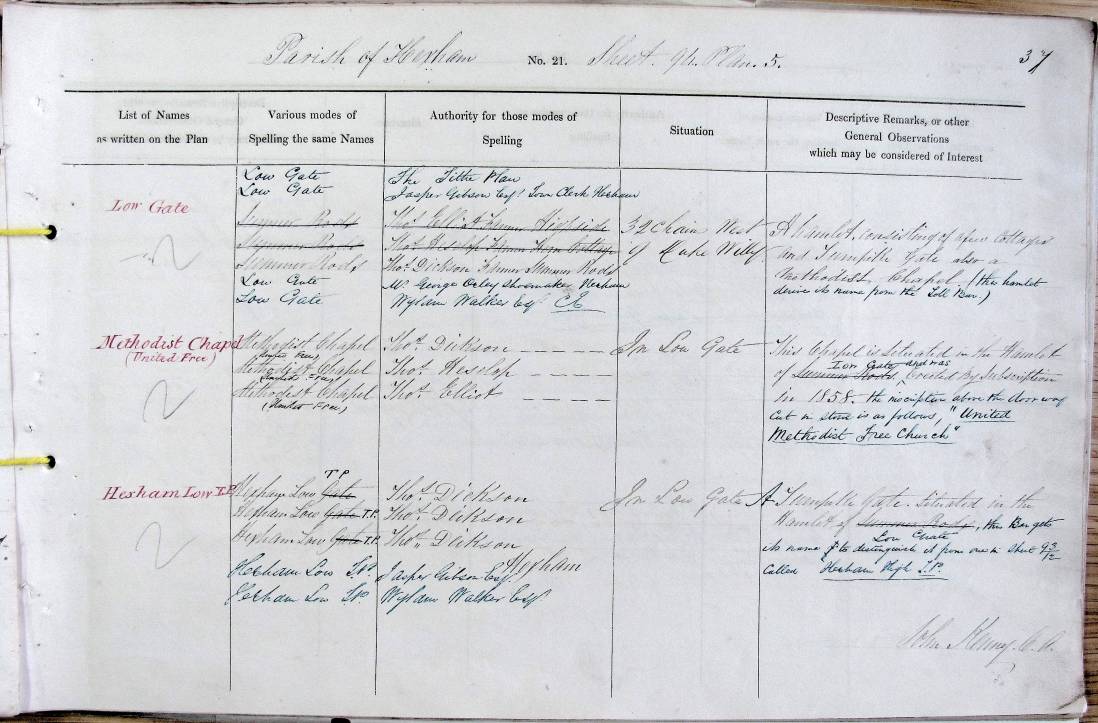 Parish of Hexham No. 21. Sheet. 94. Plan. 5. 37
List of Names
as written on the Plan
Various modes of
Spelling the same Names
Authority for those modes of
Spelling
Situation
Descriptive Remarks, or other
General Observations
which may be considered of Interest
Low Gate
Low Gate The Tithe Plan
Low Gate Jasper Gibson Esqr. Town Clerk Hexham
Summer Rods Thos. Elliot Farmer Highside
Summer Rods Thos. Heslop Farmer
Summer Rods Thos. Dickson Farmer Summer Rods
Low Gate Mr. George Oxley Shoemaker Hexham
Low Gate Wylam Walker Esqr. C.E.
32 Chain West
of
A Hamlet, consisting of a few Cottages
and Turnpike Gate also a
Methodist Chapel. (this hamlet
derive its name from the Toll Bar.)
Methodist Chapel
(United Free)
Methodist Chapel Thos. Dickson
(United Free)
Methodist Chapel Thos. Heslop
(United Free)
Methodist Chapel Thos. Elliot
(United Free)
In Low Gate
This Chapel is situated in the Hamlet
of Summer Rods, Low Gate and was Erected by Subscription
in 1858. the inscription above the doorway
cut in stone is as follows, "United
Methodist Free Church"
Hexham Low T.P.
Hexham Low Gate T.P. Thos. Dickson
Hexham Low Gate T.P. Thos. Dickson
Hexham Low Gate T.P. Thos. Dickson
Hexham Low T.P. Jasper Gibson Esqr. Hexham
Hexham Low T.P. Wylam Walker Esqr.
In Low Gate
A Turnpike Gate. Situated in the
Hamlet of Summer Rods, Low Gate this Bar gets
its name to distinguish it from one in Sheet 93/12
called Hexham High T.P.
John Kenny. C.A.